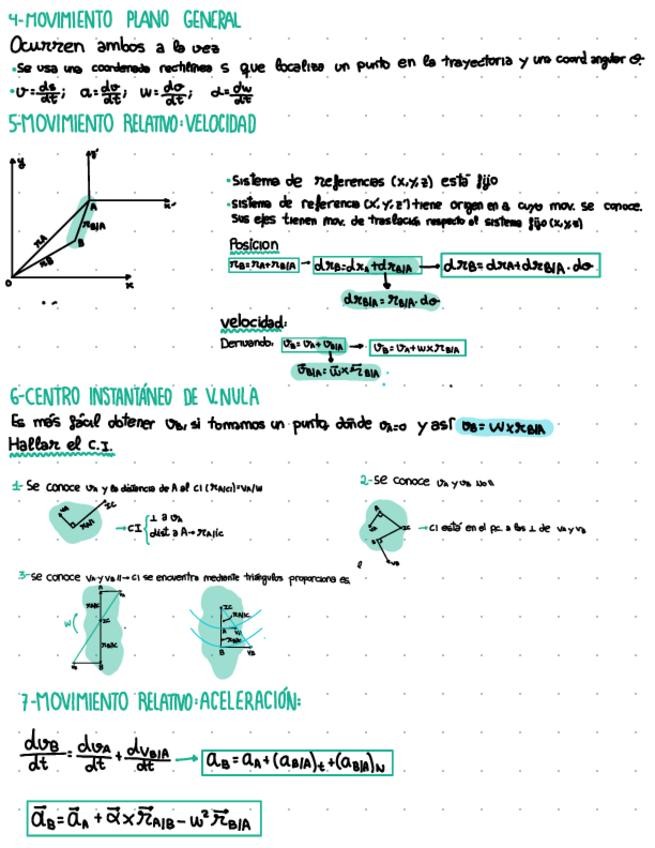 4-MOVIMIENTO PLANO GENERAL
Ocurren ambos a la vez
•Se usa una coordenada rectilínea s que localiza un punto en la trayectoria y una coord angular θ.
•v=ds/dt; a=dv/dt; w=dθ/dt; α=dw/dt
5-MOVIMIENTO RELATIVO:VELOCIDAD
y
y'
A
x'
rA
rB/A
B
rB
O
x
•Sistema de referencias (x,y,z) está fijo
•Sistema de referencia (x',y',z') tiene origen en a cuyo mov. se conoce.
Sus ejes tienen mov. de traslación respecto al sistema fijo (x,y,z)
Posicion
rB=rA+rB/A → drB=drA+drB/A → drB=drA+drB/A·dθ
drB/A=rB/A·dθ
velocidad:
Derivando: vB=vA+vB/A → vB=vA+wxrB/A
v⃗B/A=w⃗xr⃗B/A
6-CENTRO INSTANTÁNEO DE V.NULA
Es más fácil obtener vB, si tomamos un punto, donde vA=0 y así vB=wxrB/A
Hallar el C.I.
1- Se conoce vA y la distancia de A al CI (rA/CI)=vA/w
2-Se conoce vA y vB no ∥
→CI { ⊥ a vA
dist a A→rA/ic
→CI está en el pc. a las ⊥ de vA y vB
3-se conoce vA y vB ∥→CI se encuentra mediante triángulos proporcionales
7-MOVIMIENTO RELATIVO:ACELERACIÓN:
dvB/dt=dvA/dt+dvB/A/dt → aB=aA+(aB/A)t+(aB/A)N
a⃗B=a⃗A+α⃗xr⃗A/B-w²r⃗B/A